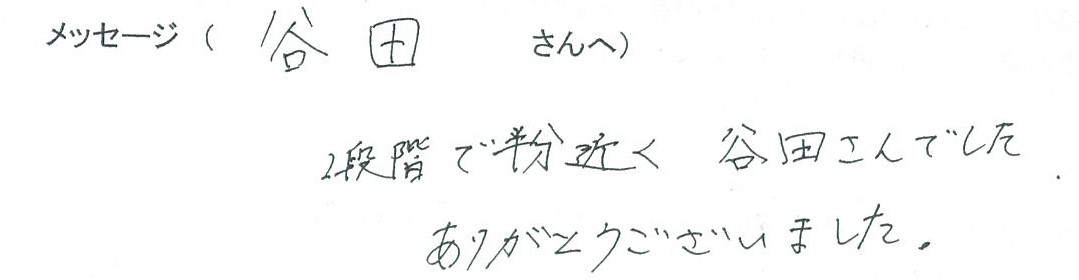 メッセージ（ 谷田 さんへ）
2段階で半分近く 谷田さんでした.
ありがとうございました。